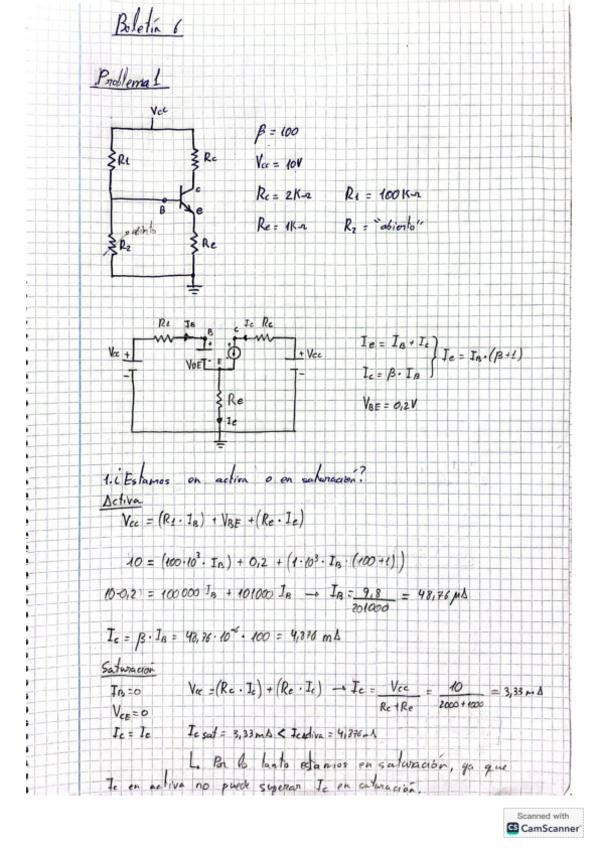 Boletín 6
Problema 1
Vcc
R1
Rc
c
B
e
R2 abierto
Re
β = 100
Vcc = 10V
Rc = 2KΩ R1 = 100KΩ
Re = 1KΩ R2 = "abierto"
R1 IB B C Ic Rc
Vcc + VBE E + Vcc
Re
Ie
Ie = IB + Ic
Ic = β · IB
Ie = IB · (β+1)
VBE = 0,2V
1. ¿Estamos en activa o en saturación?
Activa
Vcc = (R1 · IB) + VBE + (Re · Ie)
10 = (100·10³ · IB) + 0,2 + (1·10³ · IB · (100+1))
10-0,2 = 100000 IB + 101000 IB → IB = 9,8 / 201000 = 48,76 μA
Ic = β · IB = 48,76·10⁻⁶ · 100 = 4,876 mA
Saturación
IB = 0 Vcc = (Rc · Ic) + (Re · Ic) → Ic = Vcc / Rc + Re = 10 / 2000 + 1000 = 3,33 mA
VCE = 0
Ic = Ie Ic sat = 3,33mA < Ic activa = 4,876mA
↳ Por lo tanto estamos en saturación, ya que
Ic en activa no puede superar Ic en saturación.
Scanned with
CS CamScanner